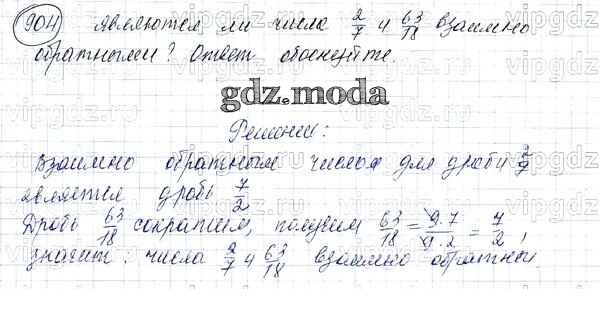 904 Являются ли числа 2/7 и 63/18 взаимно
обратными? Ответ обоснуйте.
gdz.moda
Решение:
Взаимно обратным числом для дроби 2/7
является дробь 7/2
Дробь 63/18 сократим, получим 63/18 = 9·7/9·2 = 7/2,
значит: числа 2/7 и 63/18 взаимно обратны.